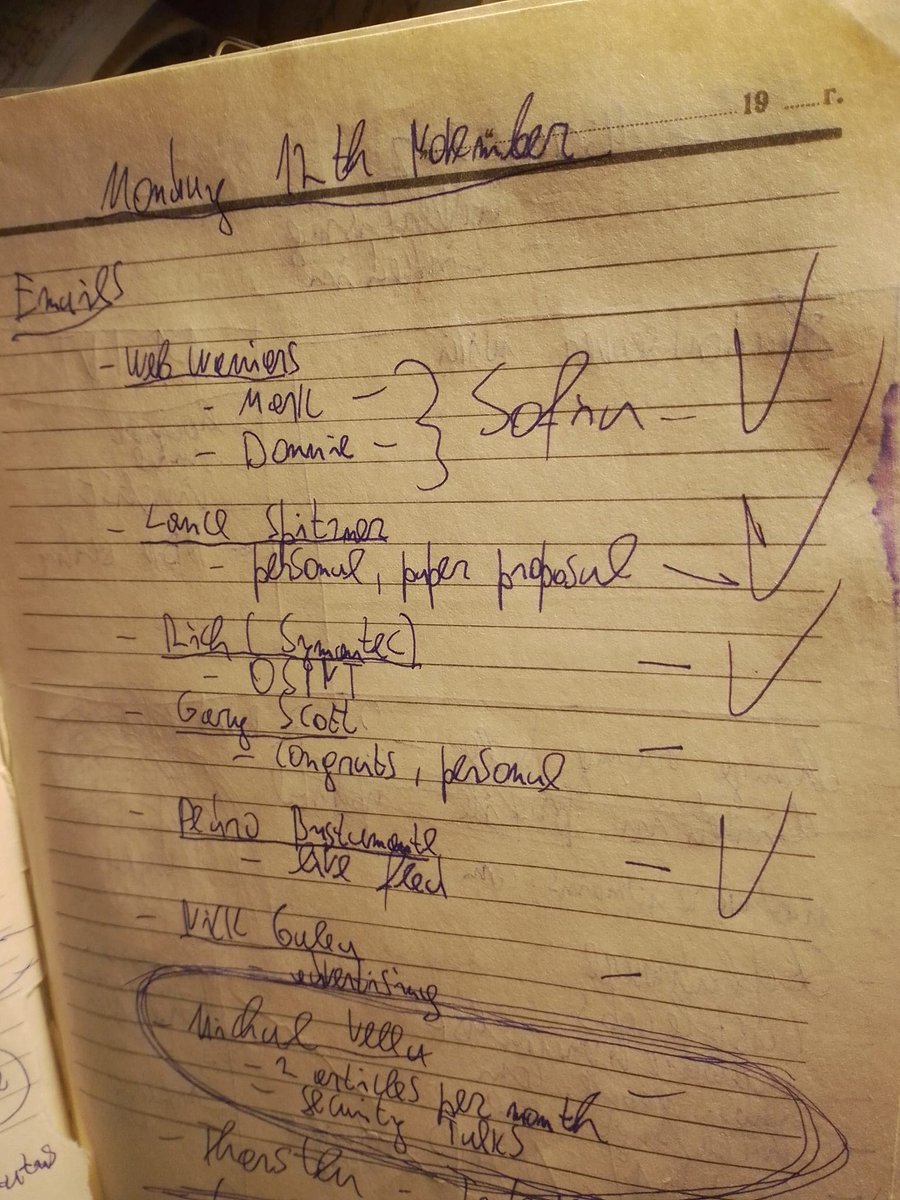 19 г.
Monday 12th November
Emails
- Web Warriors
- Mark -
- Donnie - } Sofia -
- Lance Spitzner
- personal, paper proposal
- Rich (Symantec) -
- OSINT
- Gary Scott -
- congrats, personal
- Pedro Bustamante
- live feed -
- Nick
- advertising -
- Michal Vella
- 2 articles per month -
- security Talks
- Thorsten -